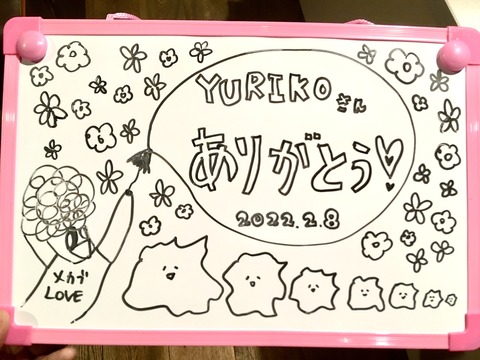 YURIKOさん
ありがとう
2022.2.8
メカブ
LOVE